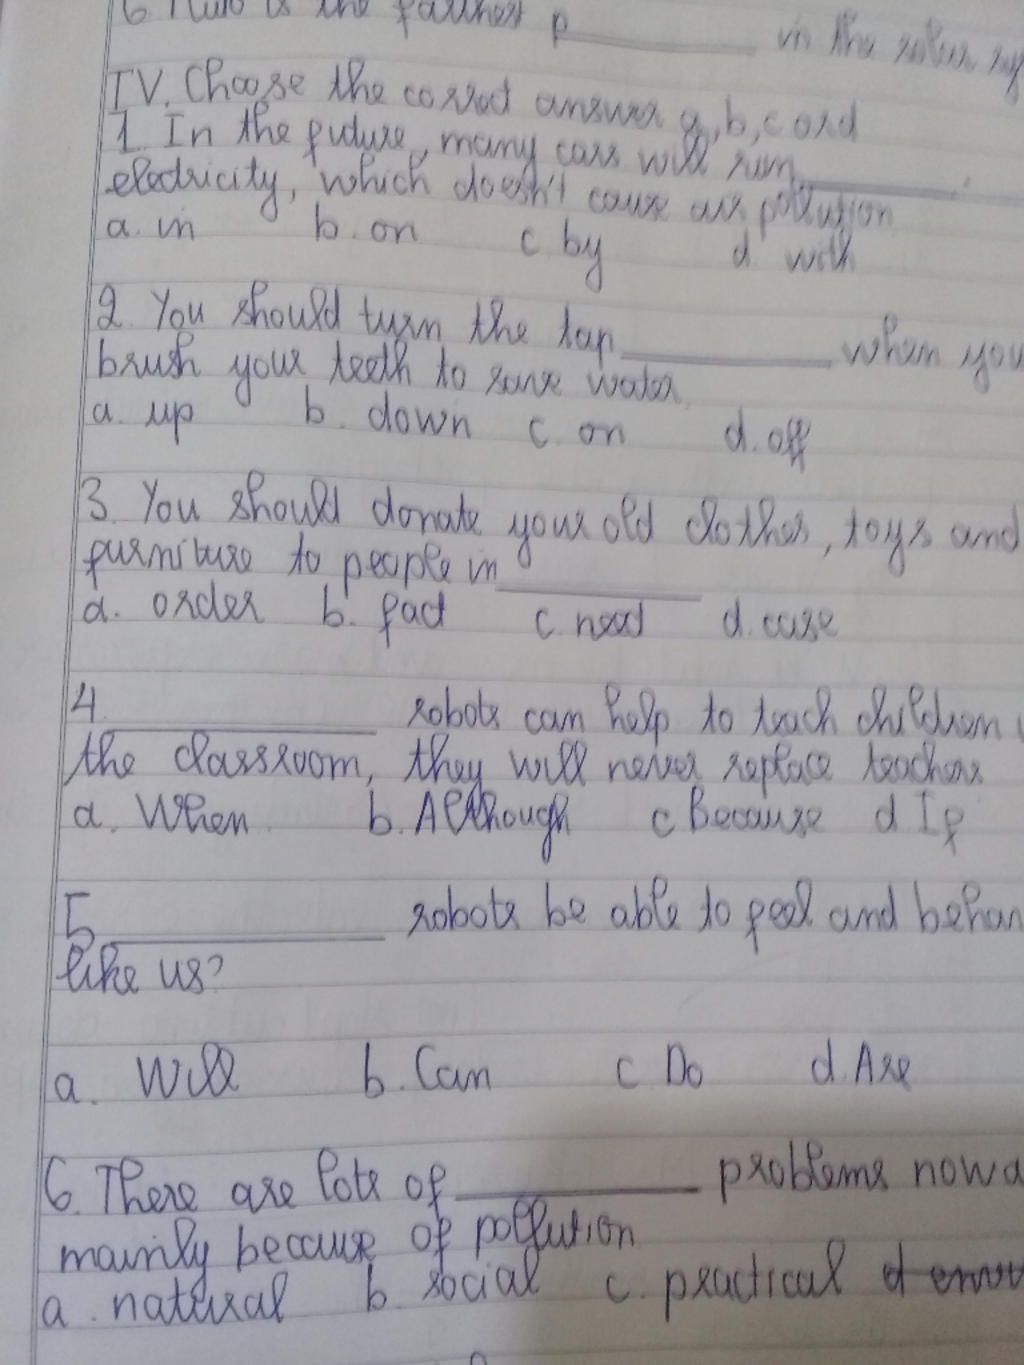 6 is the farthest p______ in the solar sy
IV. Choose the correct answer a, b, c or d
1. In the future, many cars will run ______.
electricity, which doesn't cause air pollution
a. in b. on c. by d. with
2. You should turn the tap ______ when you
brush your teeth to save water.
a. up b. down c. on d. off
3. You should donate your old clothes, toys and
furniture to people in ______
a. order b. fact c. need d. case
4. ______ robots can help to teach children
the classroom, they will never replace teachers
a. When b. Although c Because d If
5. ______ robots be able to feel and behav
like us?
a. Will b. Can c Do d. Are
6. There are lots of ______ problems nowa
mainly because of pollution
a. natural b. social c. practical d envir